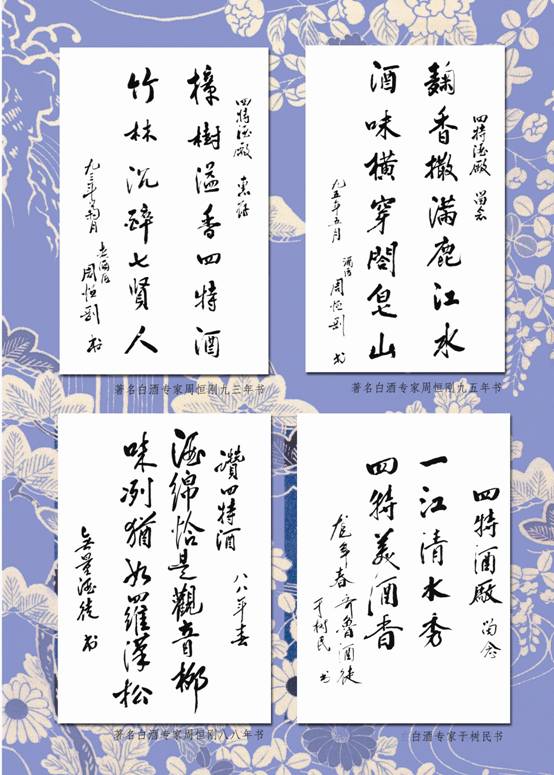 四特酒廠 惠存
樟樹溢香四特酒
竹林沉醉七賢人
九三年菊月
周恒剛 书
著名白酒专家周恒刚九三年书
四特酒廠 留念
麴香撒滿鹿江水
酒味橫穿閤皂山
九五年五月
周恒剛 书
著名白酒专家周恒刚九五年书
讚四特酒 八八年春
酒綿恰是觀音柳
味冽猶如羅漢松
無量酒徒 书
著名白酒专家周恒刚八八年书
四特酒廠 留念
一江清水秀
四特美酒香
龙年春 齐鲁酒徒
于树民 书
白酒专家于树民书